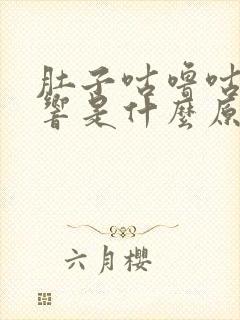 肚子咕噜咕
響是什麼原
六月櫻